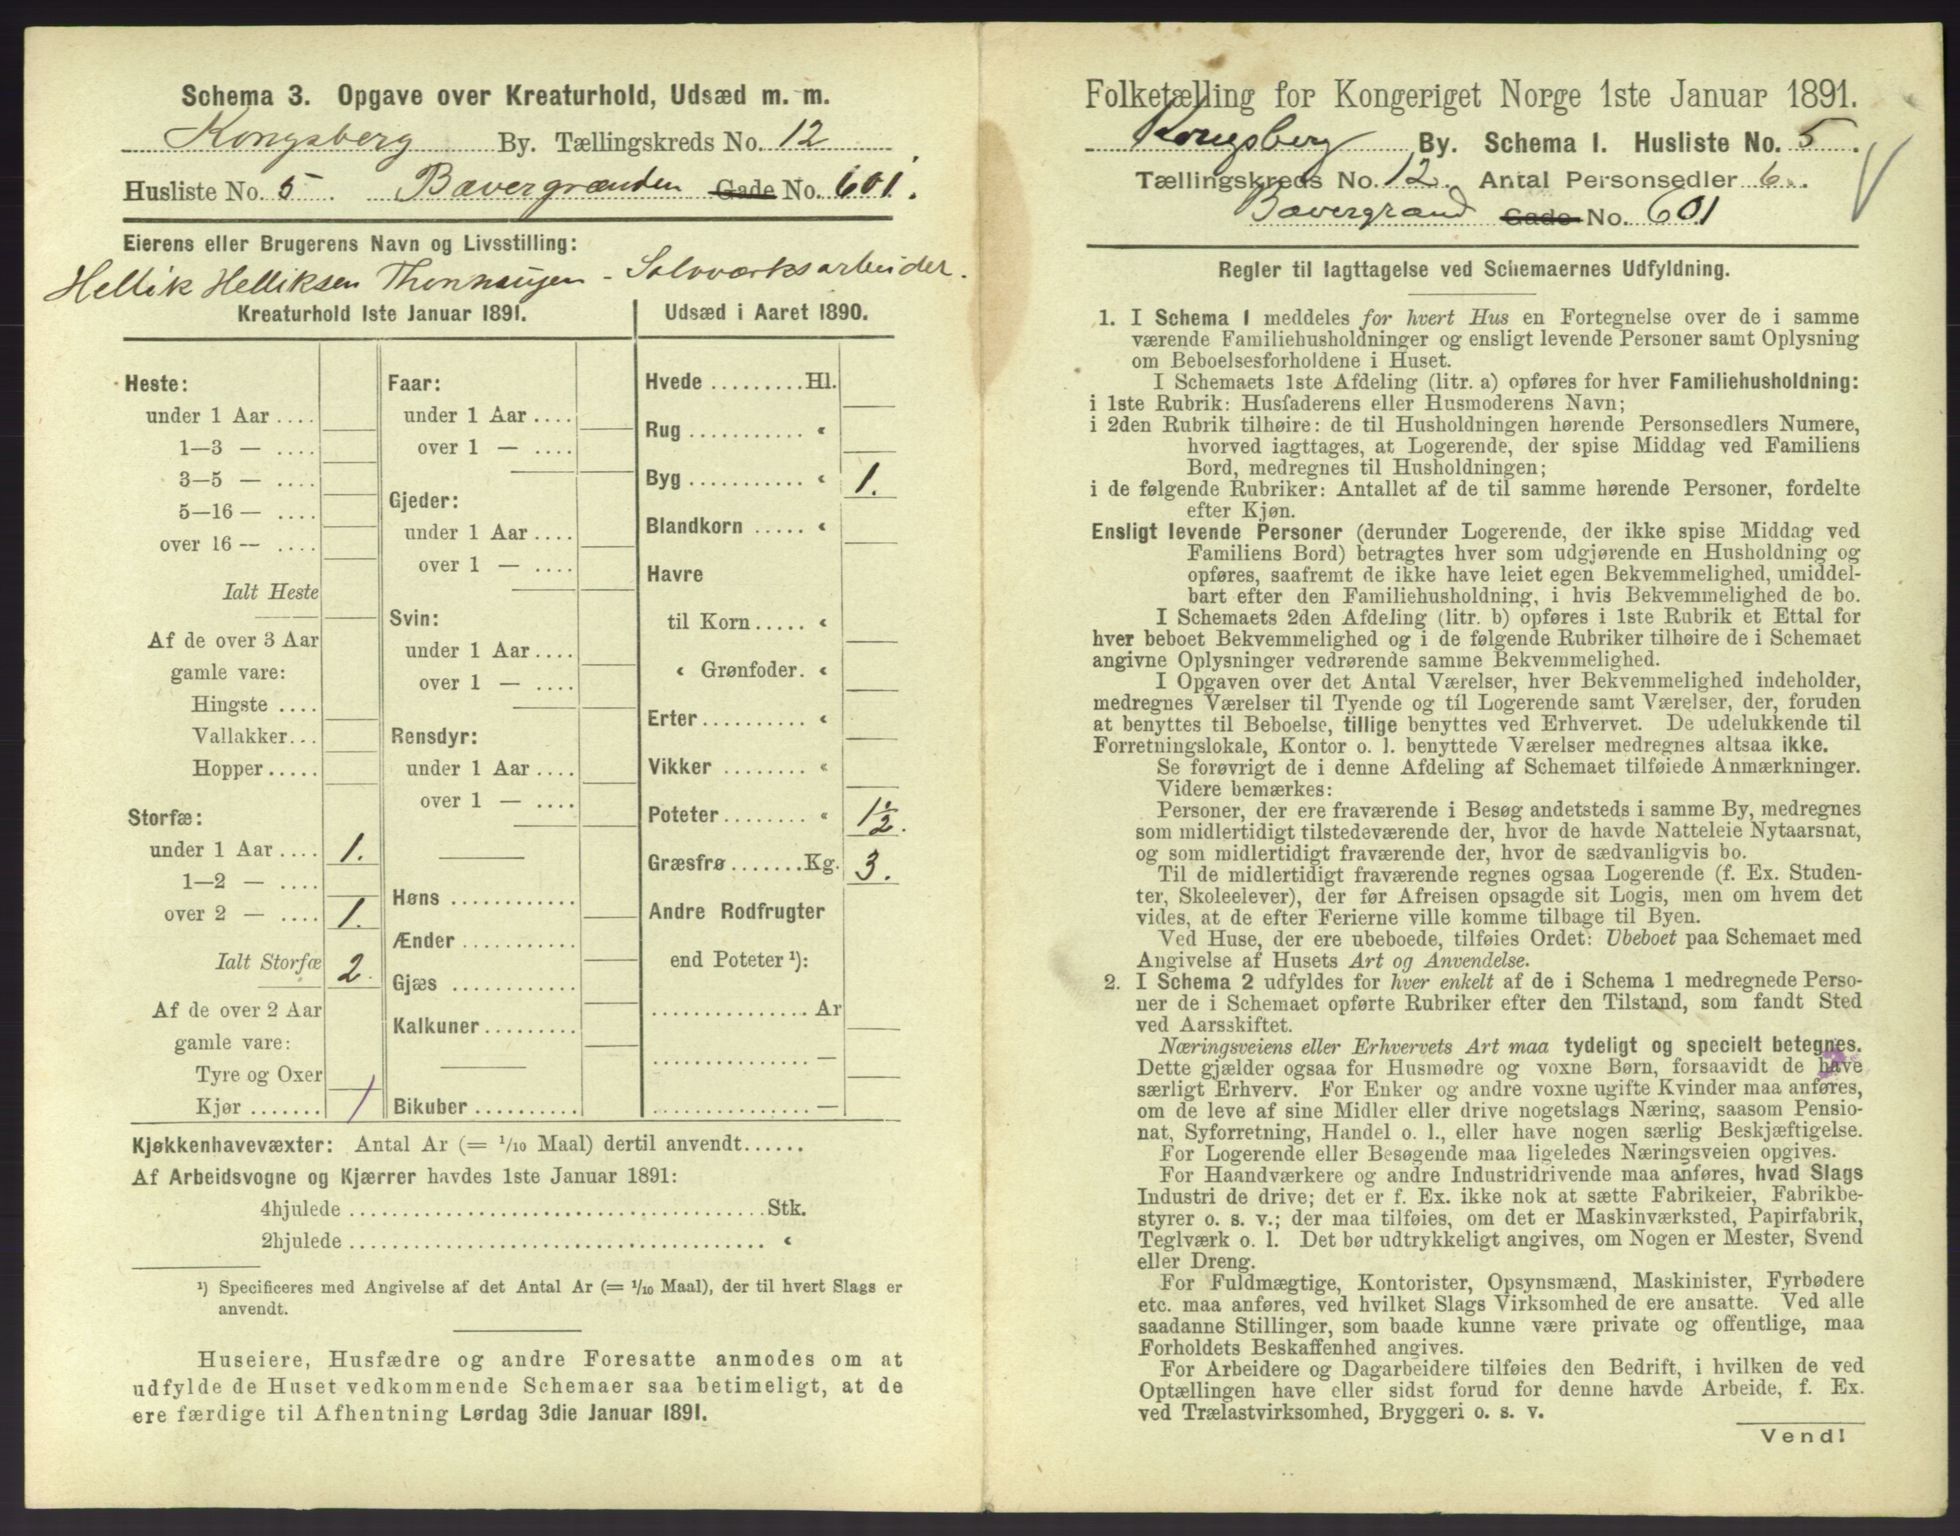 Schema 3. Opgave over Kreaturhold, Udsæd m. m.
Kongsberg By. Tællingskreds No. 12
Husliste No. 5. Bævergrænden Gade No. 601.
Eierens eller Brugerens Navn og Livsstilling:
Hellik Helliksen Thonhaugen - Sølvværksarbeider.
Kreaturhold 1ste Januar 1891.
Heste:
under 1 Aar ....
1—3 — ....
3—5 — ....
5—16 — ....
over 16 — ....
Ialt Heste
Af de over 3 Aar
gamle vare:
Hingste ....
Vallakker...
Hopper.....
Storfæ:
under 1 Aar .... 1.
1—2 — ....
over 2 — .... 1.
Ialt Storfæ 2.
Af de over 2 Aar
gamle vare:
Tyre og Oxer
Kjør ....... 1
Faar:
under 1 Aar ....
over 1 — ....
Gjeder:
under 1 Aar ....
over 1 — ....
Svin:
under 1 Aar ....
over 1 — ....
Rensdyr:
under 1 Aar ....
over 1 — ....
Høns ............
Ænder ...........
Gjæs ............
Kalkuner .........
Bikuber ..........
Udsæd i Aaret 1890.
Hvede .........Hl.
Rug ........... «
Byg ........... « 1.
Blandkorn ..... «
Havre
til Korn..... «
« Grønfoder. «
Erter.......... «
Vikker ........ «
Poteter ........ « 1½.
Græsfrø .......Kg. 3.
Andre Rodfrugter
end Poteter ¹):
............... Ar
............... —
............... —
Kjøkkenhavevæxter: Antal Ar (= 1/10 Maal) dertil anvendt......
Af Arbeidsvogne og Kjærrer havdes 1ste Januar 1891:
4hjulede ........................................ Stk.
2hjulede ........................................ «
¹) Specificeres med Angivelse af det Antal Ar (= 1/10 Maal), der til hvert Slags er
anvendt.
Huseiere, Husfædre og andre Foresatte anmodes om at
udfylde de Huset vedkommende Schemaer saa betimeligt, at de
ere færdige til Afhentning Lørdag 3die Januar 1891.
Folketælling for Kongeriget Norge 1ste Januar 1891.
Kongsberg By. Schema I. Husliste No. 5.
Tællingskreds No. 12. Antal Personsedler 6.
Bævergrænd Gade No. 601
Regler til Iagttagelse ved Schemaernes Udfyldning.
1. I Schema 1 meddeles for hvert Hus en Fortegnelse over de i samme
værende Familiehusholdninger og ensligt levende Personer samt Oplysning
om Beboelsesforholdene i Huset.
I Schemaets 1ste Afdeling (litr. a) opføres for hver Familiehusholdning:
i 1ste Rubrik: Husfaderens eller Husmoderens Navn;
i 2den Rubrik tilhøire: de til Husholdningen hørende Personsedlers Numere,
hvorved iagttages, at Logerende, der spise Middag ved Familiens
Bord, medregnes til Husholdningen;
i de følgende Rubriker: Antallet af de til samme hørende Personer, fordelte
efter Kjøn.
Ensligt levende Personer (derunder Logerende, der ikke spise Middag ved
Familiens Bord) betragtes hver som udgjørende en Husholdning og
opføres, saafremt de ikke have leiet egen Bekvemmelighed, umiddel-
bart efter den Familiehusholdning, i hvis Bekvemmelighed de bo.
I Schemaets 2den Afdeling (litr. b) opføres i 1ste Rubrik et Ettal for
hver beboet Bekvemmelighed og i de følgende Rubriker tilhøire de i Schemaet
angivne Oplysninger vedrørende samme Bekvemmelighed.
I Opgaven over det Antal Værelser, hver Bekvemmelighed indeholder,
medregnes Værelser til Tyende og til Logerende samt Værelser, der, foruden
at benyttes til Beboelse, tillige benyttes ved Erhvervet. De udelukkende til
Forretningslokale, Kontor o. l. benyttede Værelser medregnes altsaa ikke.
Se forøvrigt de i denne Afdeling af Schemaet tilføiede Anmærkninger.
Videre bemærkes:
Personer, der ere fraværende i Besøg andetsteds i samme By, medregnes
som midlertidigt tilstedeværende der, hvor de havde Natteleie Nytaarsnat,
og som midlertidigt fraværende der, hvor de sædvanligvis bo.
Til de midlertidigt fraværende regnes ogsaa Logerende (f. Ex. Studen-
ter, Skoleelever), der før Afreisen opsagde sit Logis, men om hvem det
vides, at de efter Ferierne ville komme tilbage til Byen.
Ved Huse, der ere ubeboede, tilføies Ordet: Ubeboet paa Schemaet med
Angivelse af Husets Art og Anvendelse.
2. I Schema 2 udfyldes for hver enkelt af de i Schema 1 medregnede Perso-
ner de i Schemaet opførte Rubriker efter den Tilstand, som fandt Sted
ved Aarsskiftet.
Næringsveiens eller Erhvervets Art maa tydeligt og specielt betegnes.
Dette gjælder ogsaa for Husmødre og voxne Børn, forsaavidt de have
særligt Erhverv. For Enker og andre voxne ugifte Kvinder maa anføres,
om de leve af sine Midler eller drive nogetslags Næring, saasom Pensio-
nat, Syforretning, Handel o. l., eller have nogen særlig Beskjæftigelse.
For Logerende eller Besøgende maa ligeledes Næringsveien opgives.
For Haandværkere og andre Industridrivende maa anføres, hvad Slags
Industri de drive; det er f. Ex. ikke nok at sætte Fabrikeier, Fabrikbe-
styrer o. s. v.; der maa tilføies, om det er Maskinværksted, Papirfabrik,
Teglværk o. l. Det bør udtrykkeligt angives, om Nogen er Mester, Svend
eller Dreng.
For Fuldmægtige, Kontorister, Opsynsmænd, Maskinister, Fyrbødere
etc. maa anføres, ved hvilket Slags Virksomhed de ere ansatte. Ved alle
saadanne Stillinger, som baade kunne være private og offentlige, maa
Forholdets Beskaffenhed angives.
For Arbeidere og Dagarbeidere tilføies den Bedrift, i hvilken de ved
Optællingen have eller sidst forud for denne havde Arbeide, f. Ex.
ved Trælastvirksomhed, Bryggeri o. s. v.
Vend!